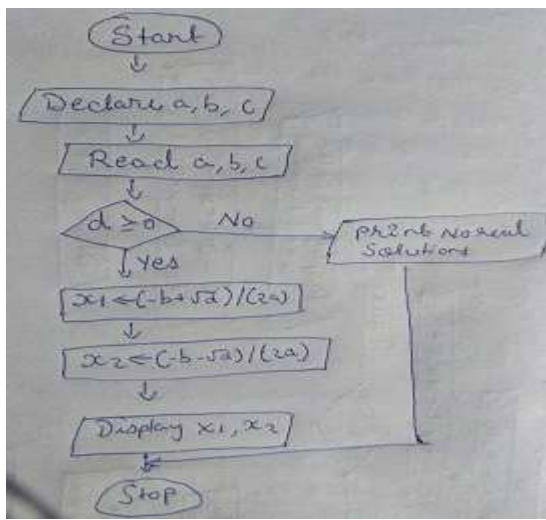 Start
Declare a, b, c
Read a, b, c
d ≥ 0
No
print No real
Solutions
Yes
x1 ← (-b+√d)/(2a)
x2 ← (-b-√d)/(2a)
Display x1, x2
Stop